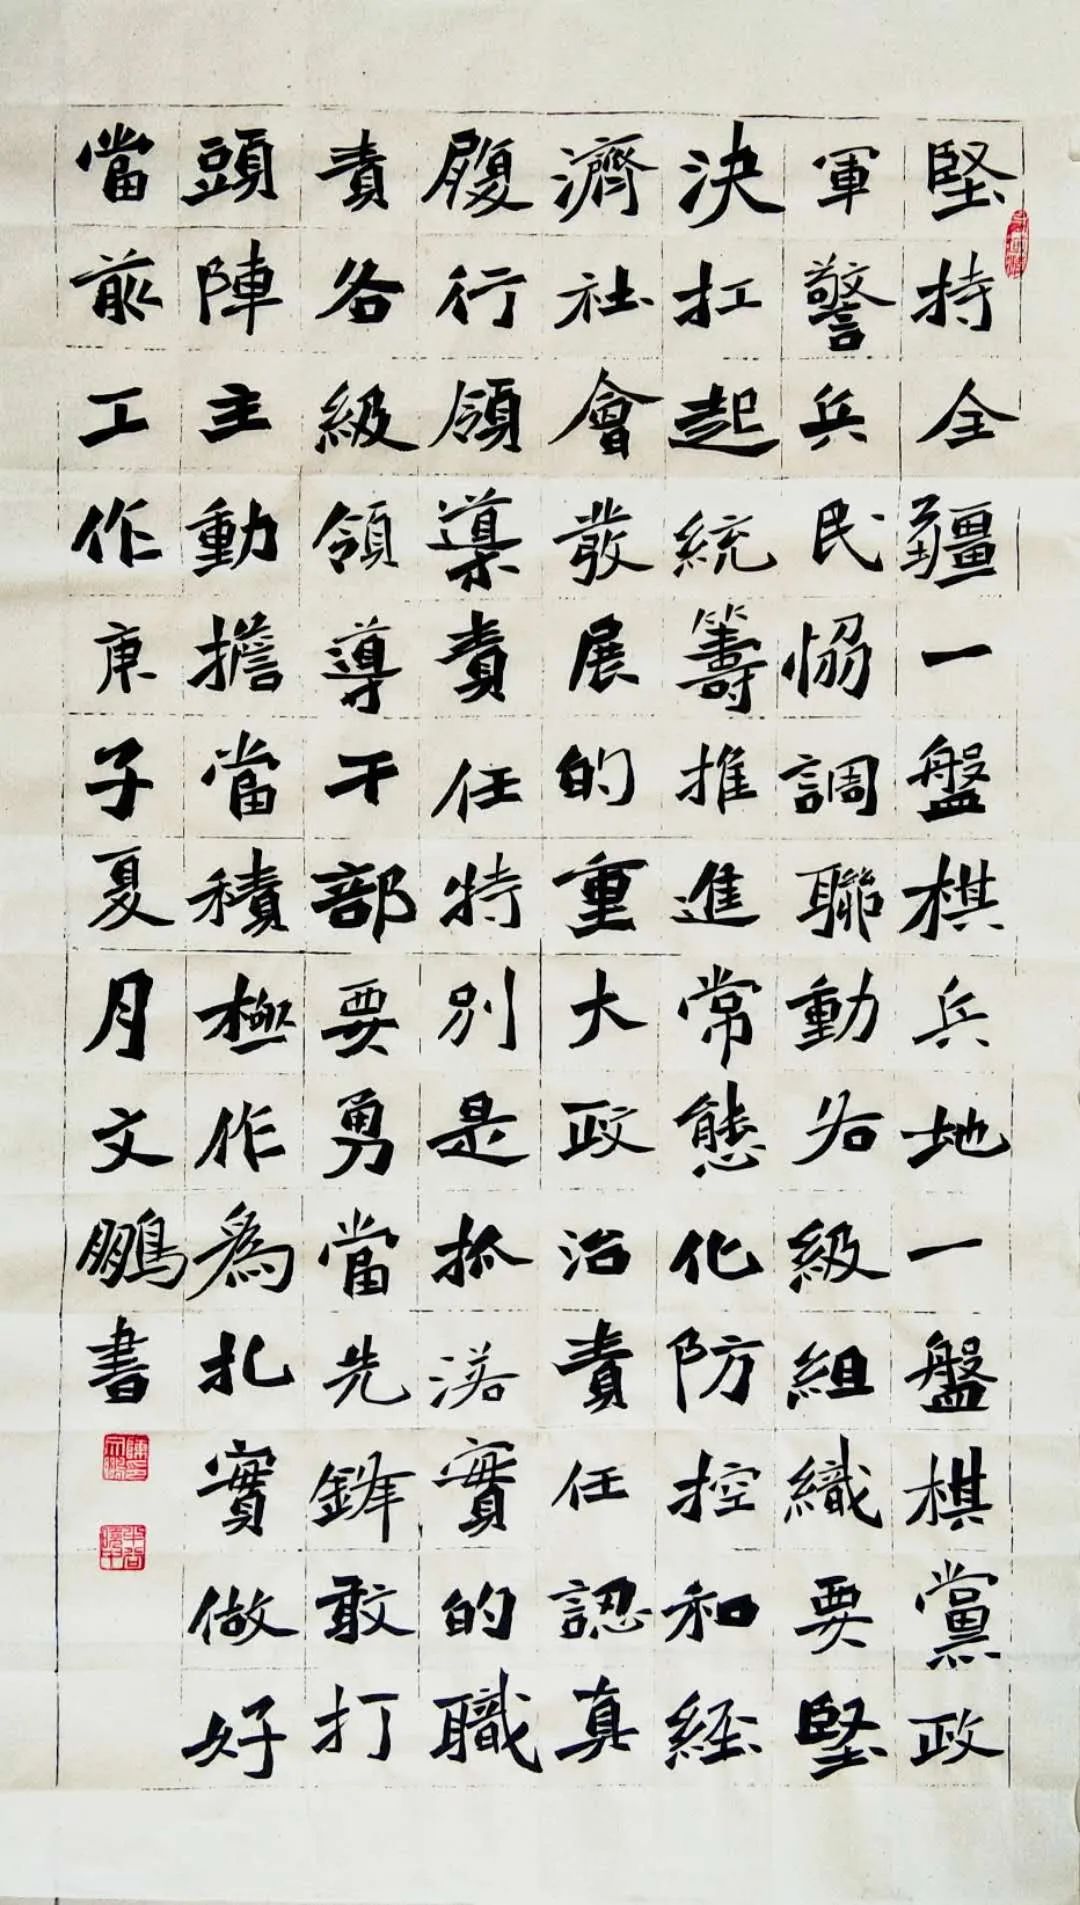 堅持全疆一盤棋兵地一盤棋黨政
軍警兵民協調聯動各級組織要堅
決扛起統籌推進常態化防控和經
濟社會發展的重大政治責任認真
履行領導責任特別是抓落實的職
責各級領導干部要勇當先鋒敢打
頭陣主動擔當積極作為扎實做好
當前工作庚子夏月文鵬書